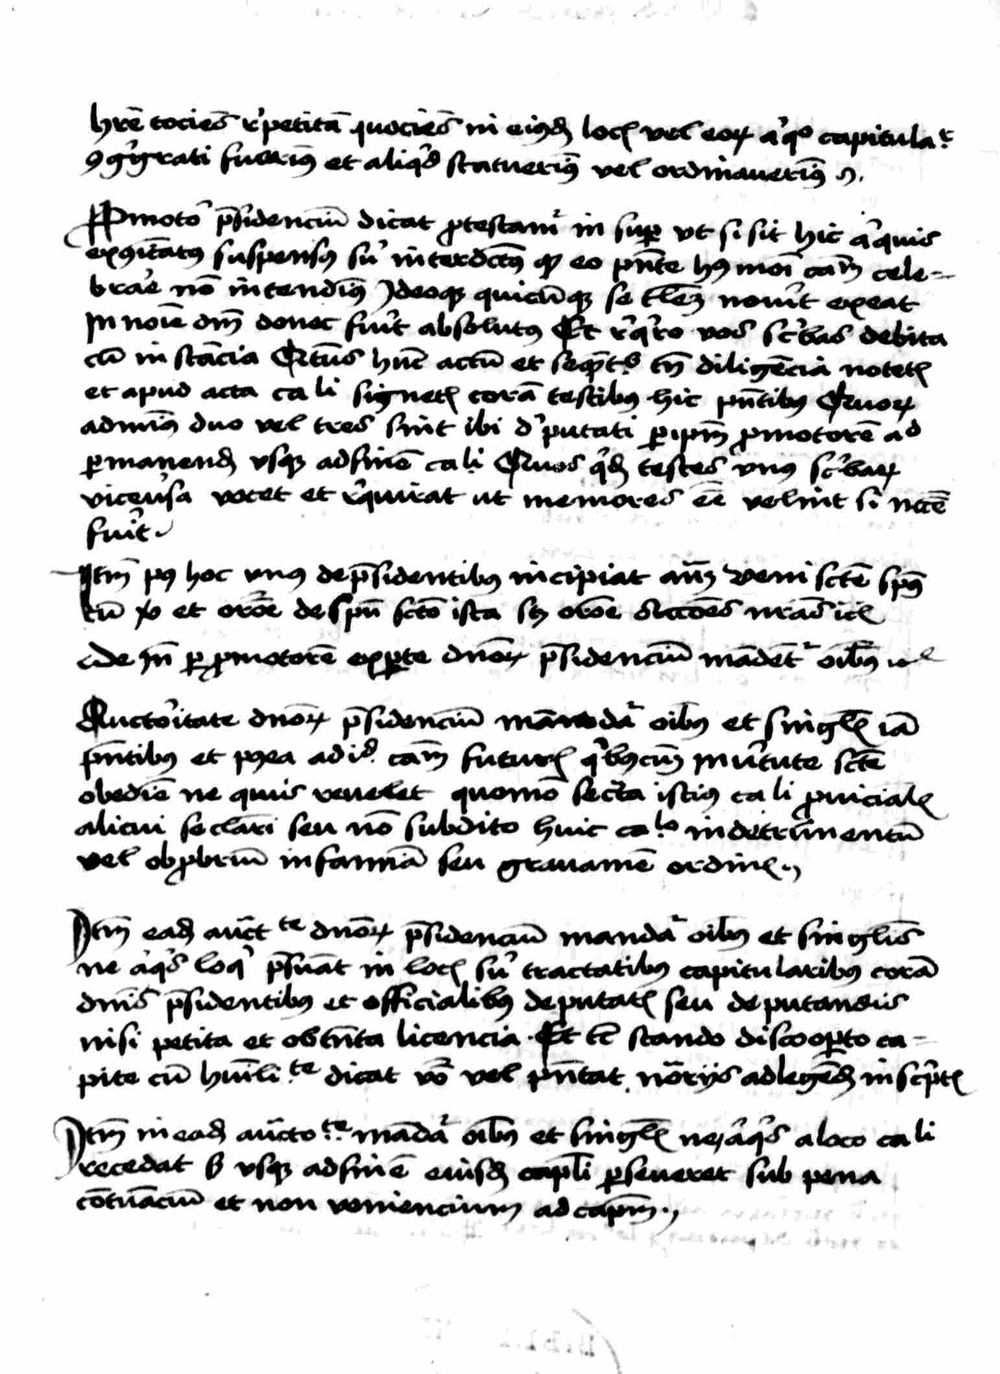 hrē tociēs r'petitā quociēs in eiusdē locꝭ vel eoꝝ aqo capitulār
ꝯg'gati fuerīt et aliqd statuerīt vel ordinauerīt
Pmoto' p̄sidenciū dicat ꝓtestam̄ in sup̱ vt si sit hic aq'uis
exꝯicatꝰ suspensꝰ su' interdctꝰ ꝙ eo pn̄te hꝰmoi cām cele-
bra'e nō intendimꝰ Ideoqꝫ quicūqꝫ se talem nouit exeat
In noīe dm̄ donec fuit absolutꝰ Et r'q'ro vos sc'bas debita
cū in stācia Qtus hūc actū et seqntes cū diligēcia notetꝭ
et apud acta ca li signetꝭ corā testibꝰ hic pn̄tibꝰ Quoꝝ
admiꝰ duo vel tres sint ibi d'putati ꝑ ipm̄ ꝓmotorē ad
ꝑmanendꝭ vsqꝫ ad finē ca li Quos qdē testes vnꝰ sc'baꝝ
vicev'sa vocet et r'quirat ut memores eē velint si nc̄cē
fuit
Itm̄ pꝰ hoc vnꝰ de p̄sidentibꝰ incipiat an̄ā Veni sctē spūs
cū ꝟ et orōe de spū sctō ista scꝫ orōe Acciōes nr̄as icꝭ
Ade In ꝑ ꝓmotorē exꝑte dnōꝝ p̄sidenciū mādet' oībꝰ
Auctoritate dnōꝝ p̄sidenciū māda' oībꝰ et singlꝭ iā
pn̄tibꝰ et pꝰea ad id cām futurꝭ q'bꝰcūqꝫ in v'tute sctē
obediē ne quis reuelet quomō secr̄ta istiꝰ ca li ꝓuicialꝭ
alicui seclari seu nō subdito huic ca lo in detrimentū
vel obꝓbriū infamiā seu grauamē ordinꝭ
Itm̄ eadꝭ auct te dnōꝝ p̄sidenciū manda' oībꝰ et singlīs
ne aq's loq' p̄sumat in locꝭ su' tractatibꝰ capitularibꝰ corā
dn̄is p̄sidentibꝰ et officialibꝰ deputatꝭ seu deputandis
nisi petita et obtn̄ta licencia Et tc̄ stando discooꝑto ca-
pite cū hūili te dicat v̄o vel pn̄tat nōrijs ad legēdꝭ in sc'ptꝭ
Itm̄ in eadꝭ aucto te māda' oībꝰ et singlꝭ ne aq's a loco ca li
recedat ß vsqꝫ ad finē eiusdꝭ capli ꝑseueret sub pena
cōtumaciū et non veniencium ad capm̄